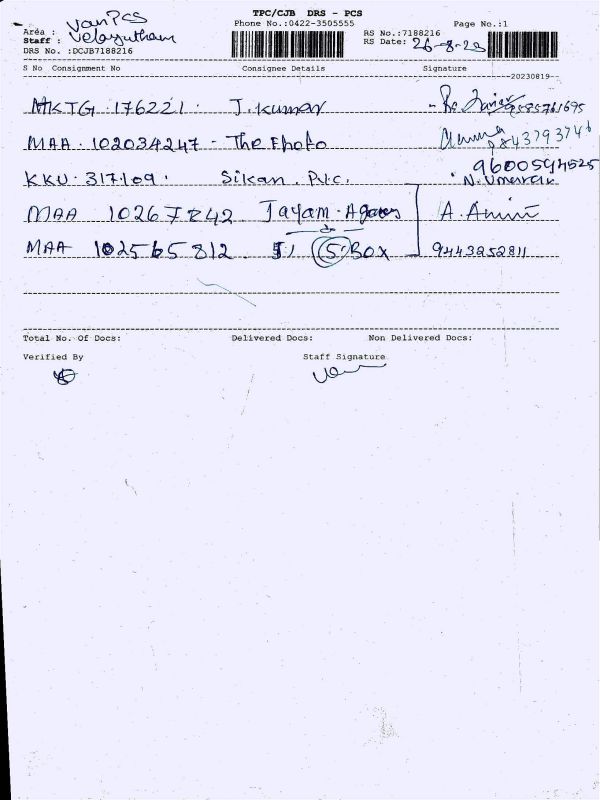 TPC/CJB DRS - PCS
Phone No.:0422-3505555 Page No.:1
Area : Van PCS
Staff : Velayutham
RS No.:7188216
RS Date: 26-8-23
DRS No. :DCJB7188216
S No Consignment No Consignee Details Signature
20230819
MKTG 176221 . J. Kumar 9585761695
MAA . 102034247 - The Photo
KKU . 317109 . Sikan . Pvt. 9600594525
MAA Jayam . A. Amini
MAA 102565812 51 (5) Box 9443252811
Total No. Of Docs: Delivered Docs: Non Delivered Docs:
Verified By Staff Signature